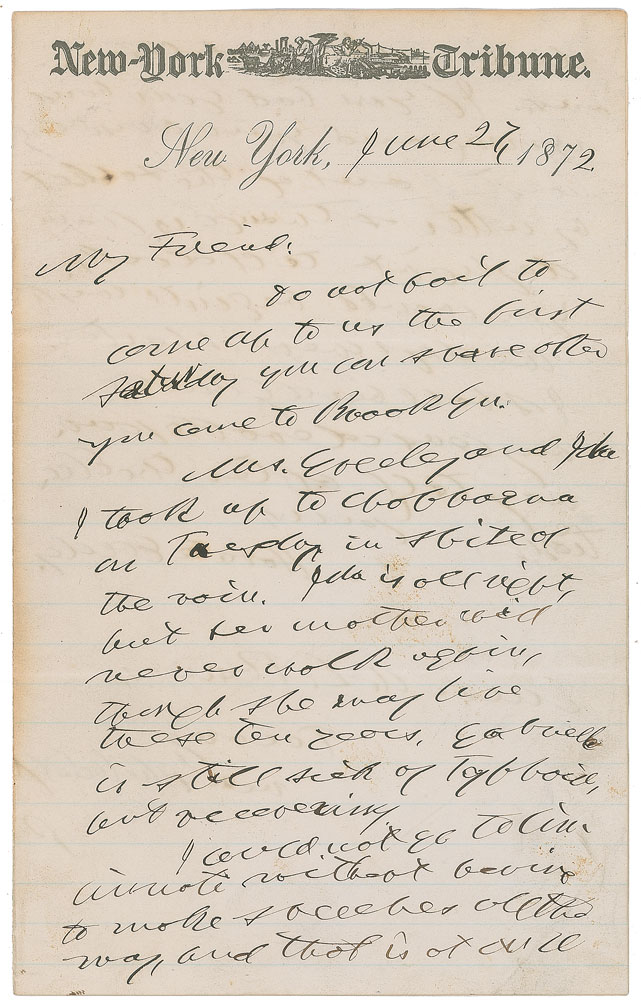 New-York Tribune.
New York, June 27, 1872
My Friend:
Do not fail to
come up to us the first
Saturday you can spare after
you come to Brooklyn.
Mrs. Greeley and Ida
I took up to Chappaqua
on Tuesday, in spite of
the rain. Ida is all right,
but her mother will
never walk again,
though she may live
these ten years. Gabrielle
is still sick of Typhoid,
but recovering.
I could not go to Cin-
cinnati without having
to make speeches all the
way, and that is at all